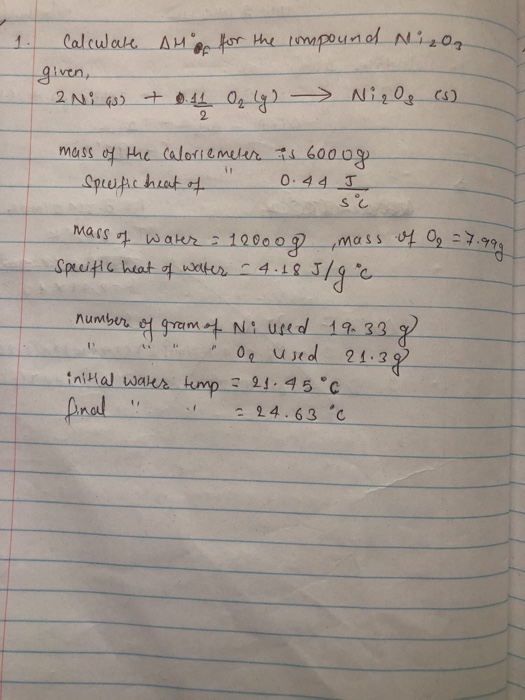 1. Calculate ΔH°f for the compound Ni2O3
given,
2 Ni (s) + 1 1/2 O2 (g) → Ni2O3 (s)
mass of the caloriemeter is 6000g
Specific heat of " 0.44 J/s°C
mass of water = 12000g, mass of O2 = 7.99g
Specific heat of water = 4.18 J/g °C
number of gram of Ni used 19.33 g
" " " " O2 used 21.3g
initial water temp = 21.45 °C
final " " = 24.63 °C